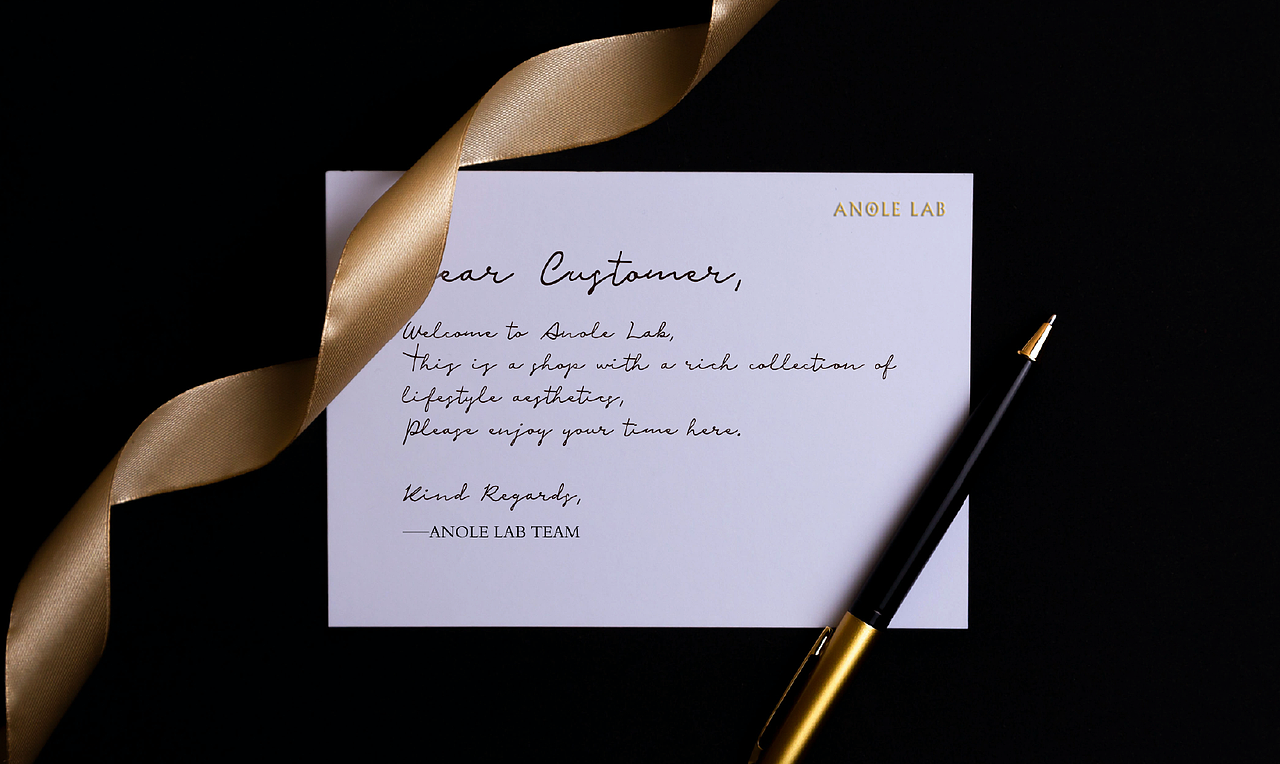 ANOLE LAB
ear Customer,
Welcome to Anole Lab,
This is a shop with a rich collection of
lifestyle aesthetics,
Please enjoy your time here.
Kind Regards,
——ANOLE LAB TEAM